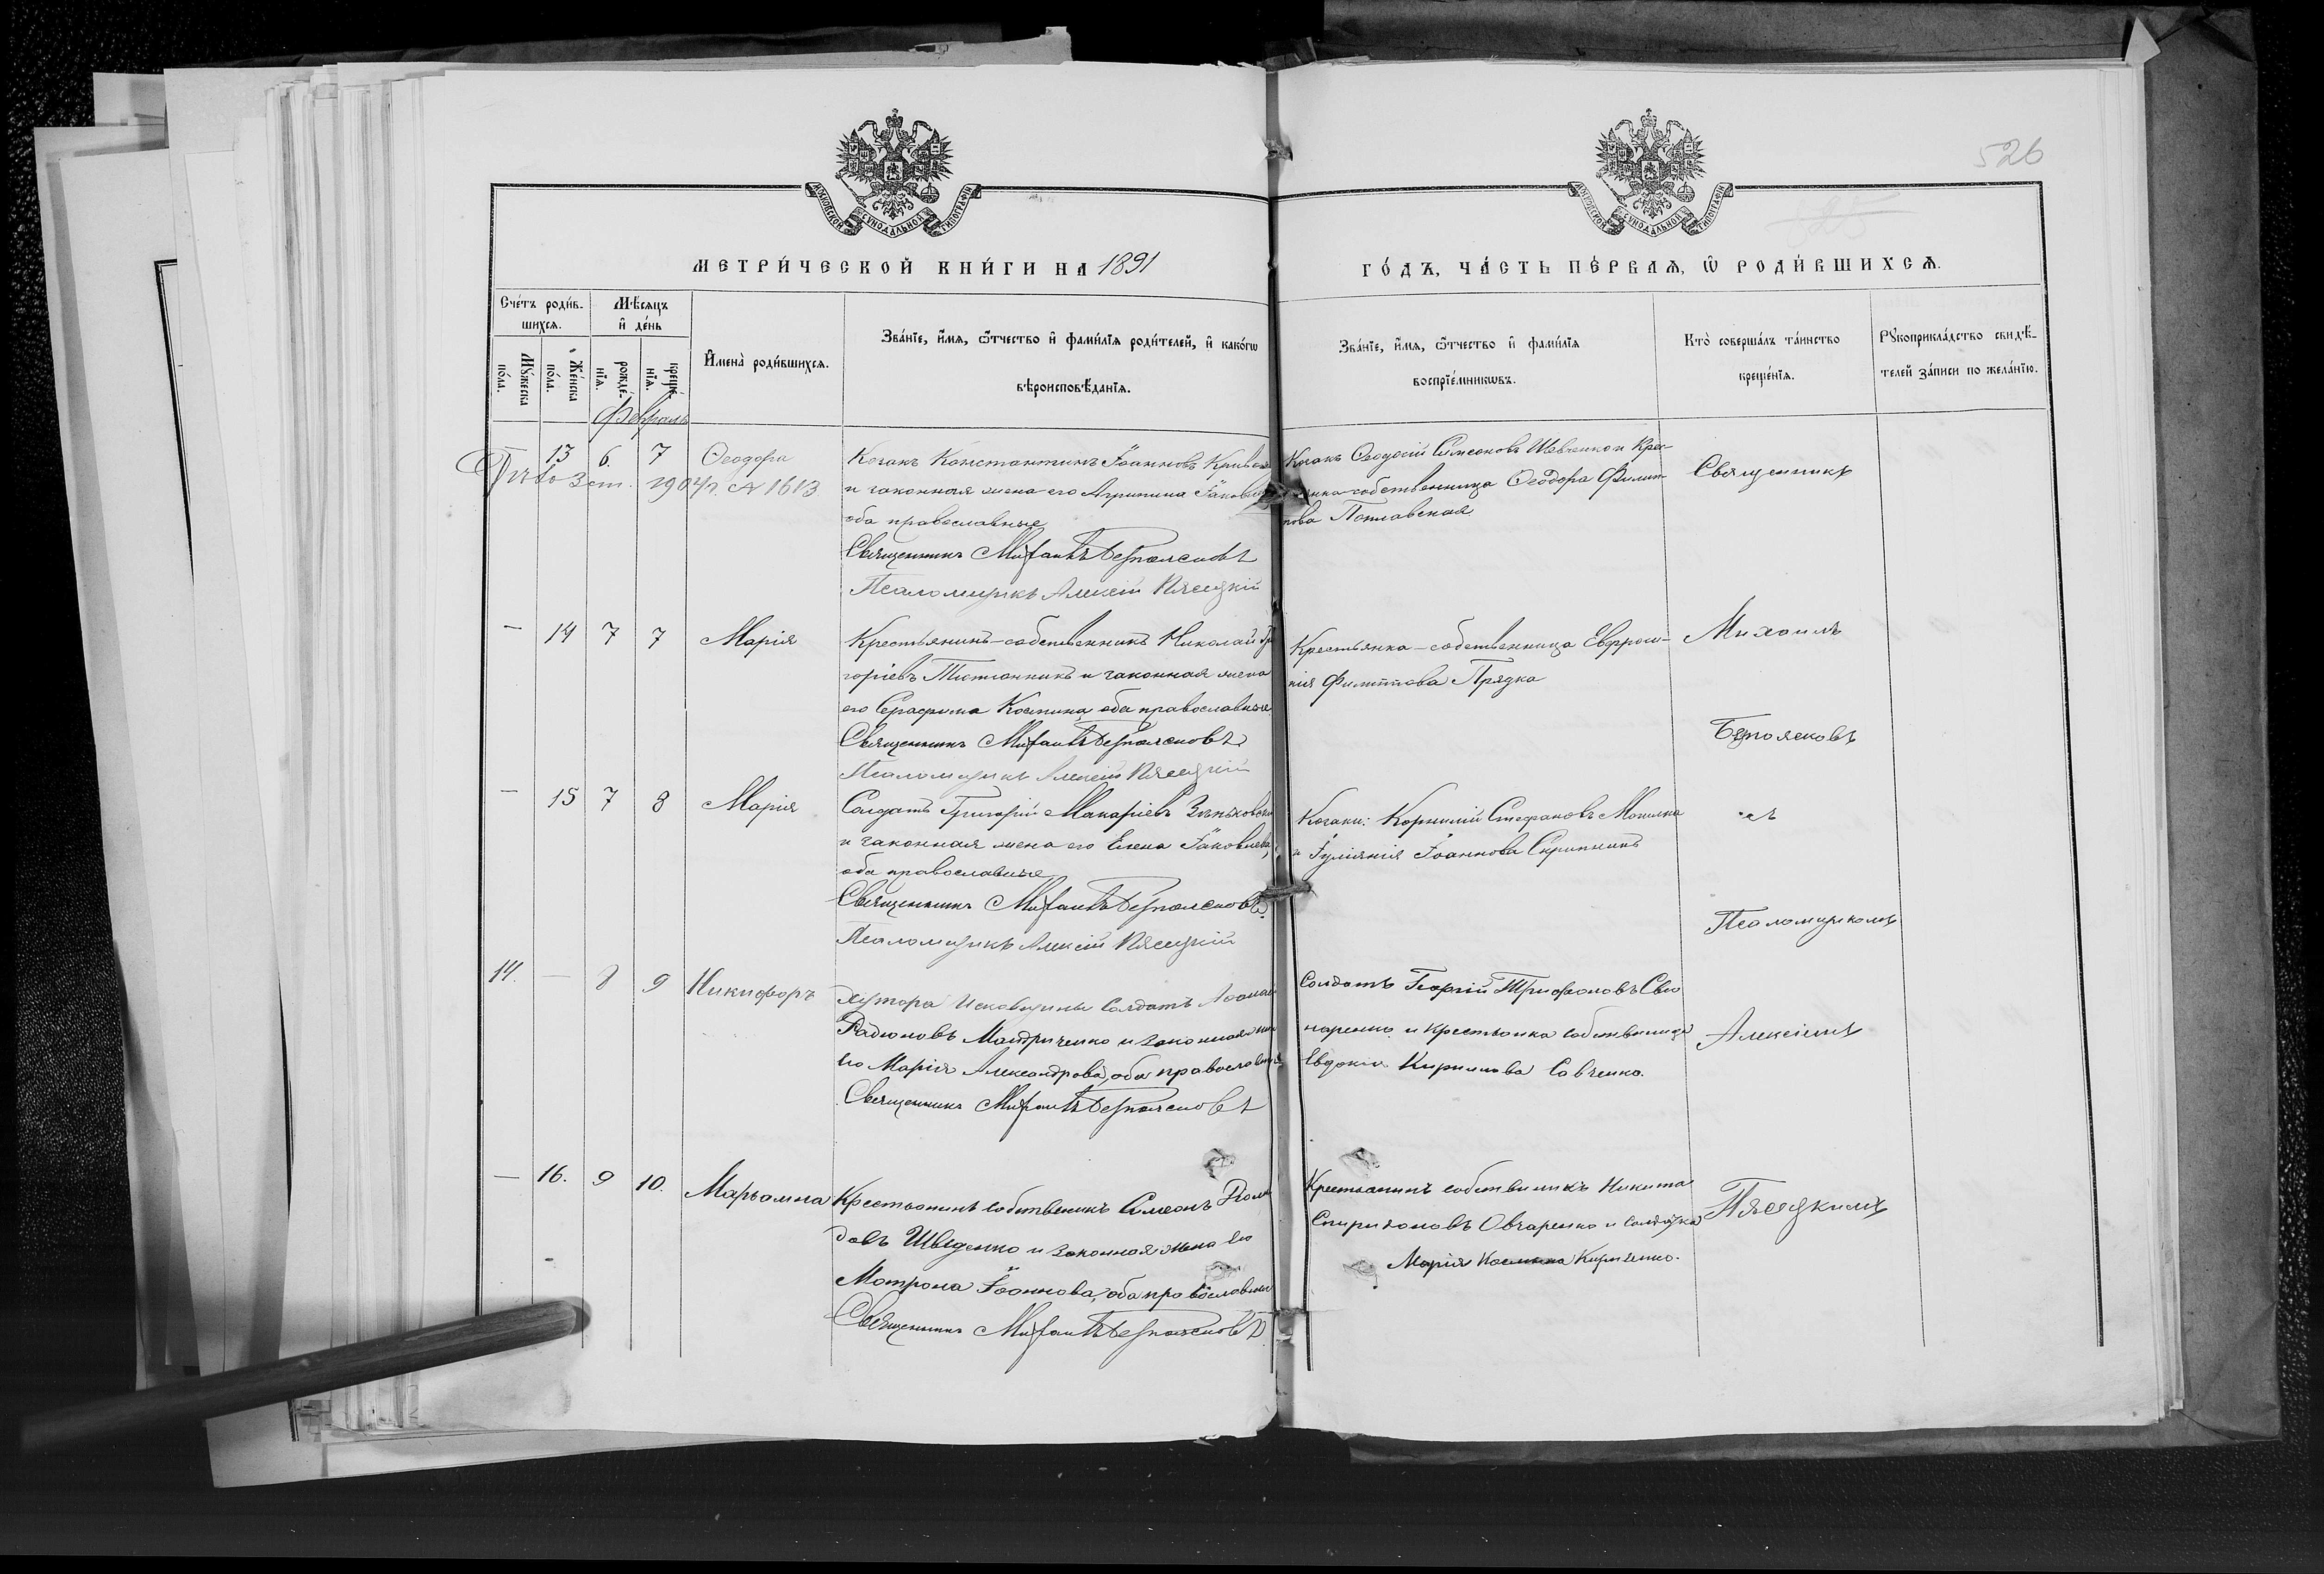 526
525
МОСКОВСКОЙ СѴНОДАЛЬНОЙ ТИПОГРАФІИ
МОСКОВСКОЙ СѴНОДАЛЬНОЙ ТИПОГРАФІИ
МЕТРИ́ЧЕСКОЙ КНИ́ГИ НА 1891
ГО́ДЪ, ЧА́СТЬ ПЕ́РВАѦ, Ѿ РОДИ́ВШИХСѦ.
Сче́тъ роди́в-
шихсѧ.
Мꙋ́жеска по́ла.
Же́нска по́ла.
Мѣ́сѧцъ
и҆ де́нь
рожде́-
нїѧ.
креще́-
нїѧ.
И҆мена̀ роди́вшихсѧ.
Зва́нїе, и҆́мѧ, ѻ҆́тчество и҆ фами́лїѧ роди́телей, и҆ како́гѡ
вѣроисповѣ́данїѧ.
Зва́нїе, и҆́мѧ, ѻ҆́тчество и҆ фами́лїѧ
воспрїе́мникѡвъ.
Кто̀ соверша́лъ та́инство
креще́нїѧ.
Рꙋкоприкла́дство свидѣ́-
телей за́писи по жела́нїю.
Февраль
13 6. 7 Ѳеодора
1904 г. № 1613
Козакъ Константинъ Іоанновъ
и законная жена его Агрипина
оба православные
Священникъ Михаилъ Безпоясковъ
Псаломщикъ Алексій Пясецкій
Козакъ Ѳеодосій Симеоновъ Шевченко и Крес-
собственница Ѳеодора Филип-
пова
Священникъ
— 14 7 7 Марія
Крестьянинъ-собственникъ Николай Гри
горіевъ Тютюнникъ и законная жена
его Серафима Космина, оба православные
Священникъ Михаилъ Безпоясковъ
Псаломщикъ Алексій Пясецкій
Крестьянка-собственница Евфроси-
нія Филиппова Прядка
Михаилъ
Безпоясковъ
— 15 7 8 Марія
Солдатъ Григорій Макаріевъ
и законная жена его Елена Іаковлева,
оба православные
Священникъ Михаилъ Безпоясковъ
Псаломщикъ Алексій Пясецкій
Козаки: Корнилій Стефановъ Могилка
и Іуліянія Іоаннова Скрипникъ
съ
Псаломщикомъ
14. — 8 9 Никифоръ
Хутора Солдатъ
Родіоновъ Мандриченко и законная жена
его Марія Александрова, оба православные
Священникъ Михаилъ Безпоясковъ
Солдатъ Георгій Трифоновъ Сви
наренко и крестьянка собственница
Евдокія Кириллова Савченко.
Алексіемъ
— 16. 9 10. Марьамна
Крестьянинъ собственникъ Симеонъ
довъ Шведенко и законная жена его
Матрона Іоаннова, оба православные
Священникъ Михаилъ Безпоясковъ
Крестьянинъ собственникъ Никита
Спиридоновъ Овчаренко и солдатка
Марія Космина Кириченко.
Пясецкимъ